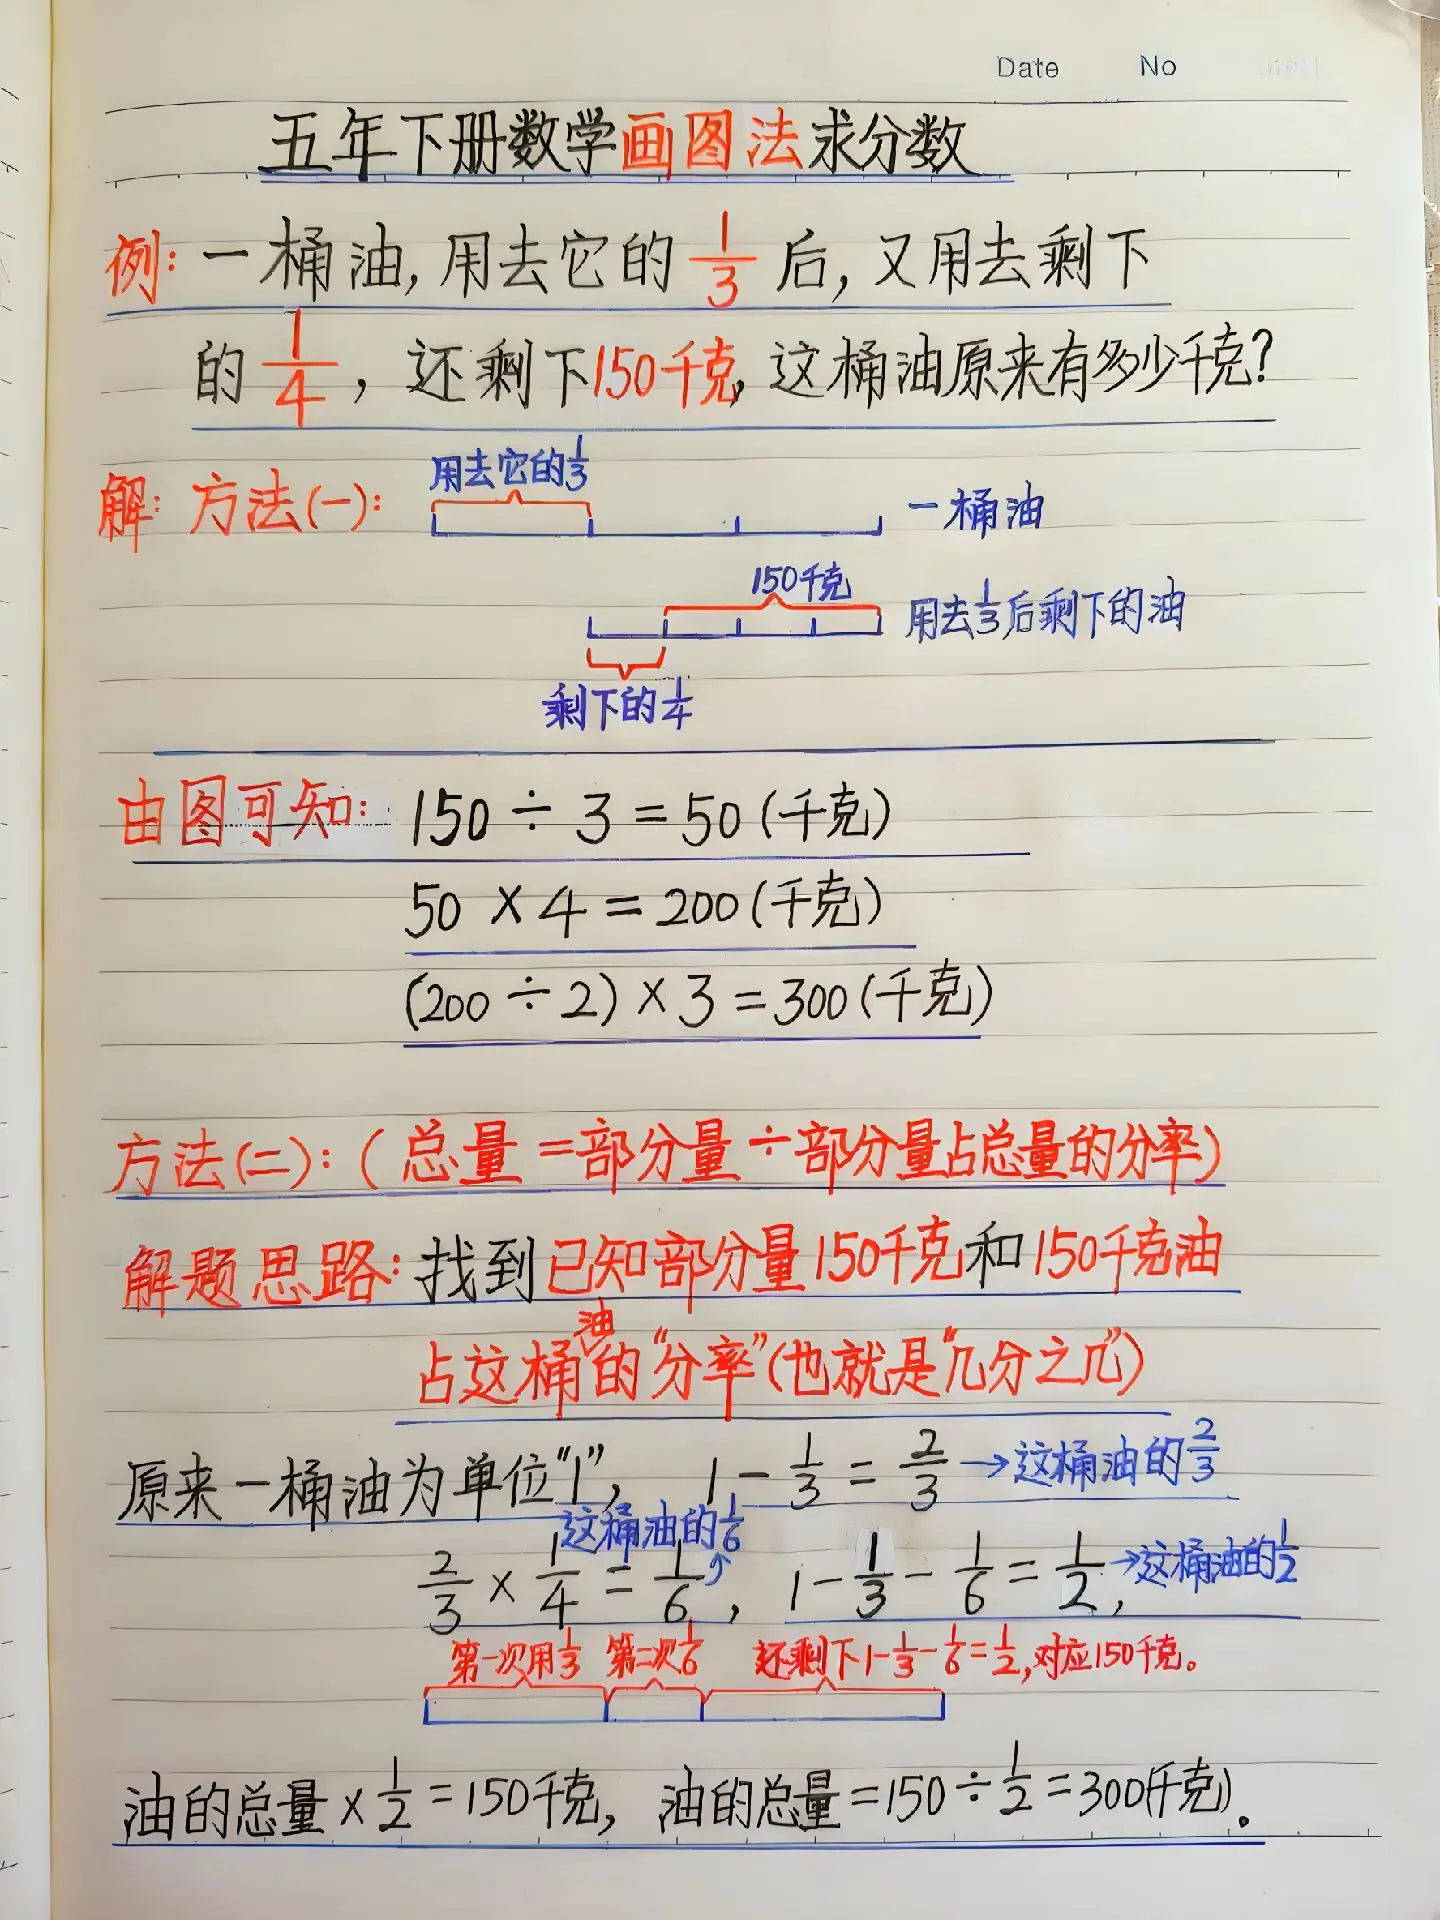 Date No
五年下册数学画图法求分数
例:一桶油,用去它的1/3后,又用去剩下
的1/4,还剩下150千克,这桶油原来有多少千克?
用去它的1/3
解:方法(一): 一桶油
150千克
用去1/3后剩下的油
剩下的1/4
由图可知:150÷3=50(千克)
50×4=200(千克)
(200÷2)×3=300(千克)
方法(二):(总量=部分量÷部分量占总量的分率)
解题思路:找到已知部分量150千克和150千克油
占这桶油的“分率”(也就是“几分之几”)
原来一桶油为单位“1”, 1-1/3=2/3→这桶油的2/3
这桶油的1/6
2/3×1/4=1/6, 1-1/3-1/6=1/2,→这桶油的1/2
第一次用1/3 第二次1/6 还剩下1-1/3-1/6=1/2,对应150千克。
油的总量×1/2=150千克, 油的总量=150÷1/2=300(千克)。